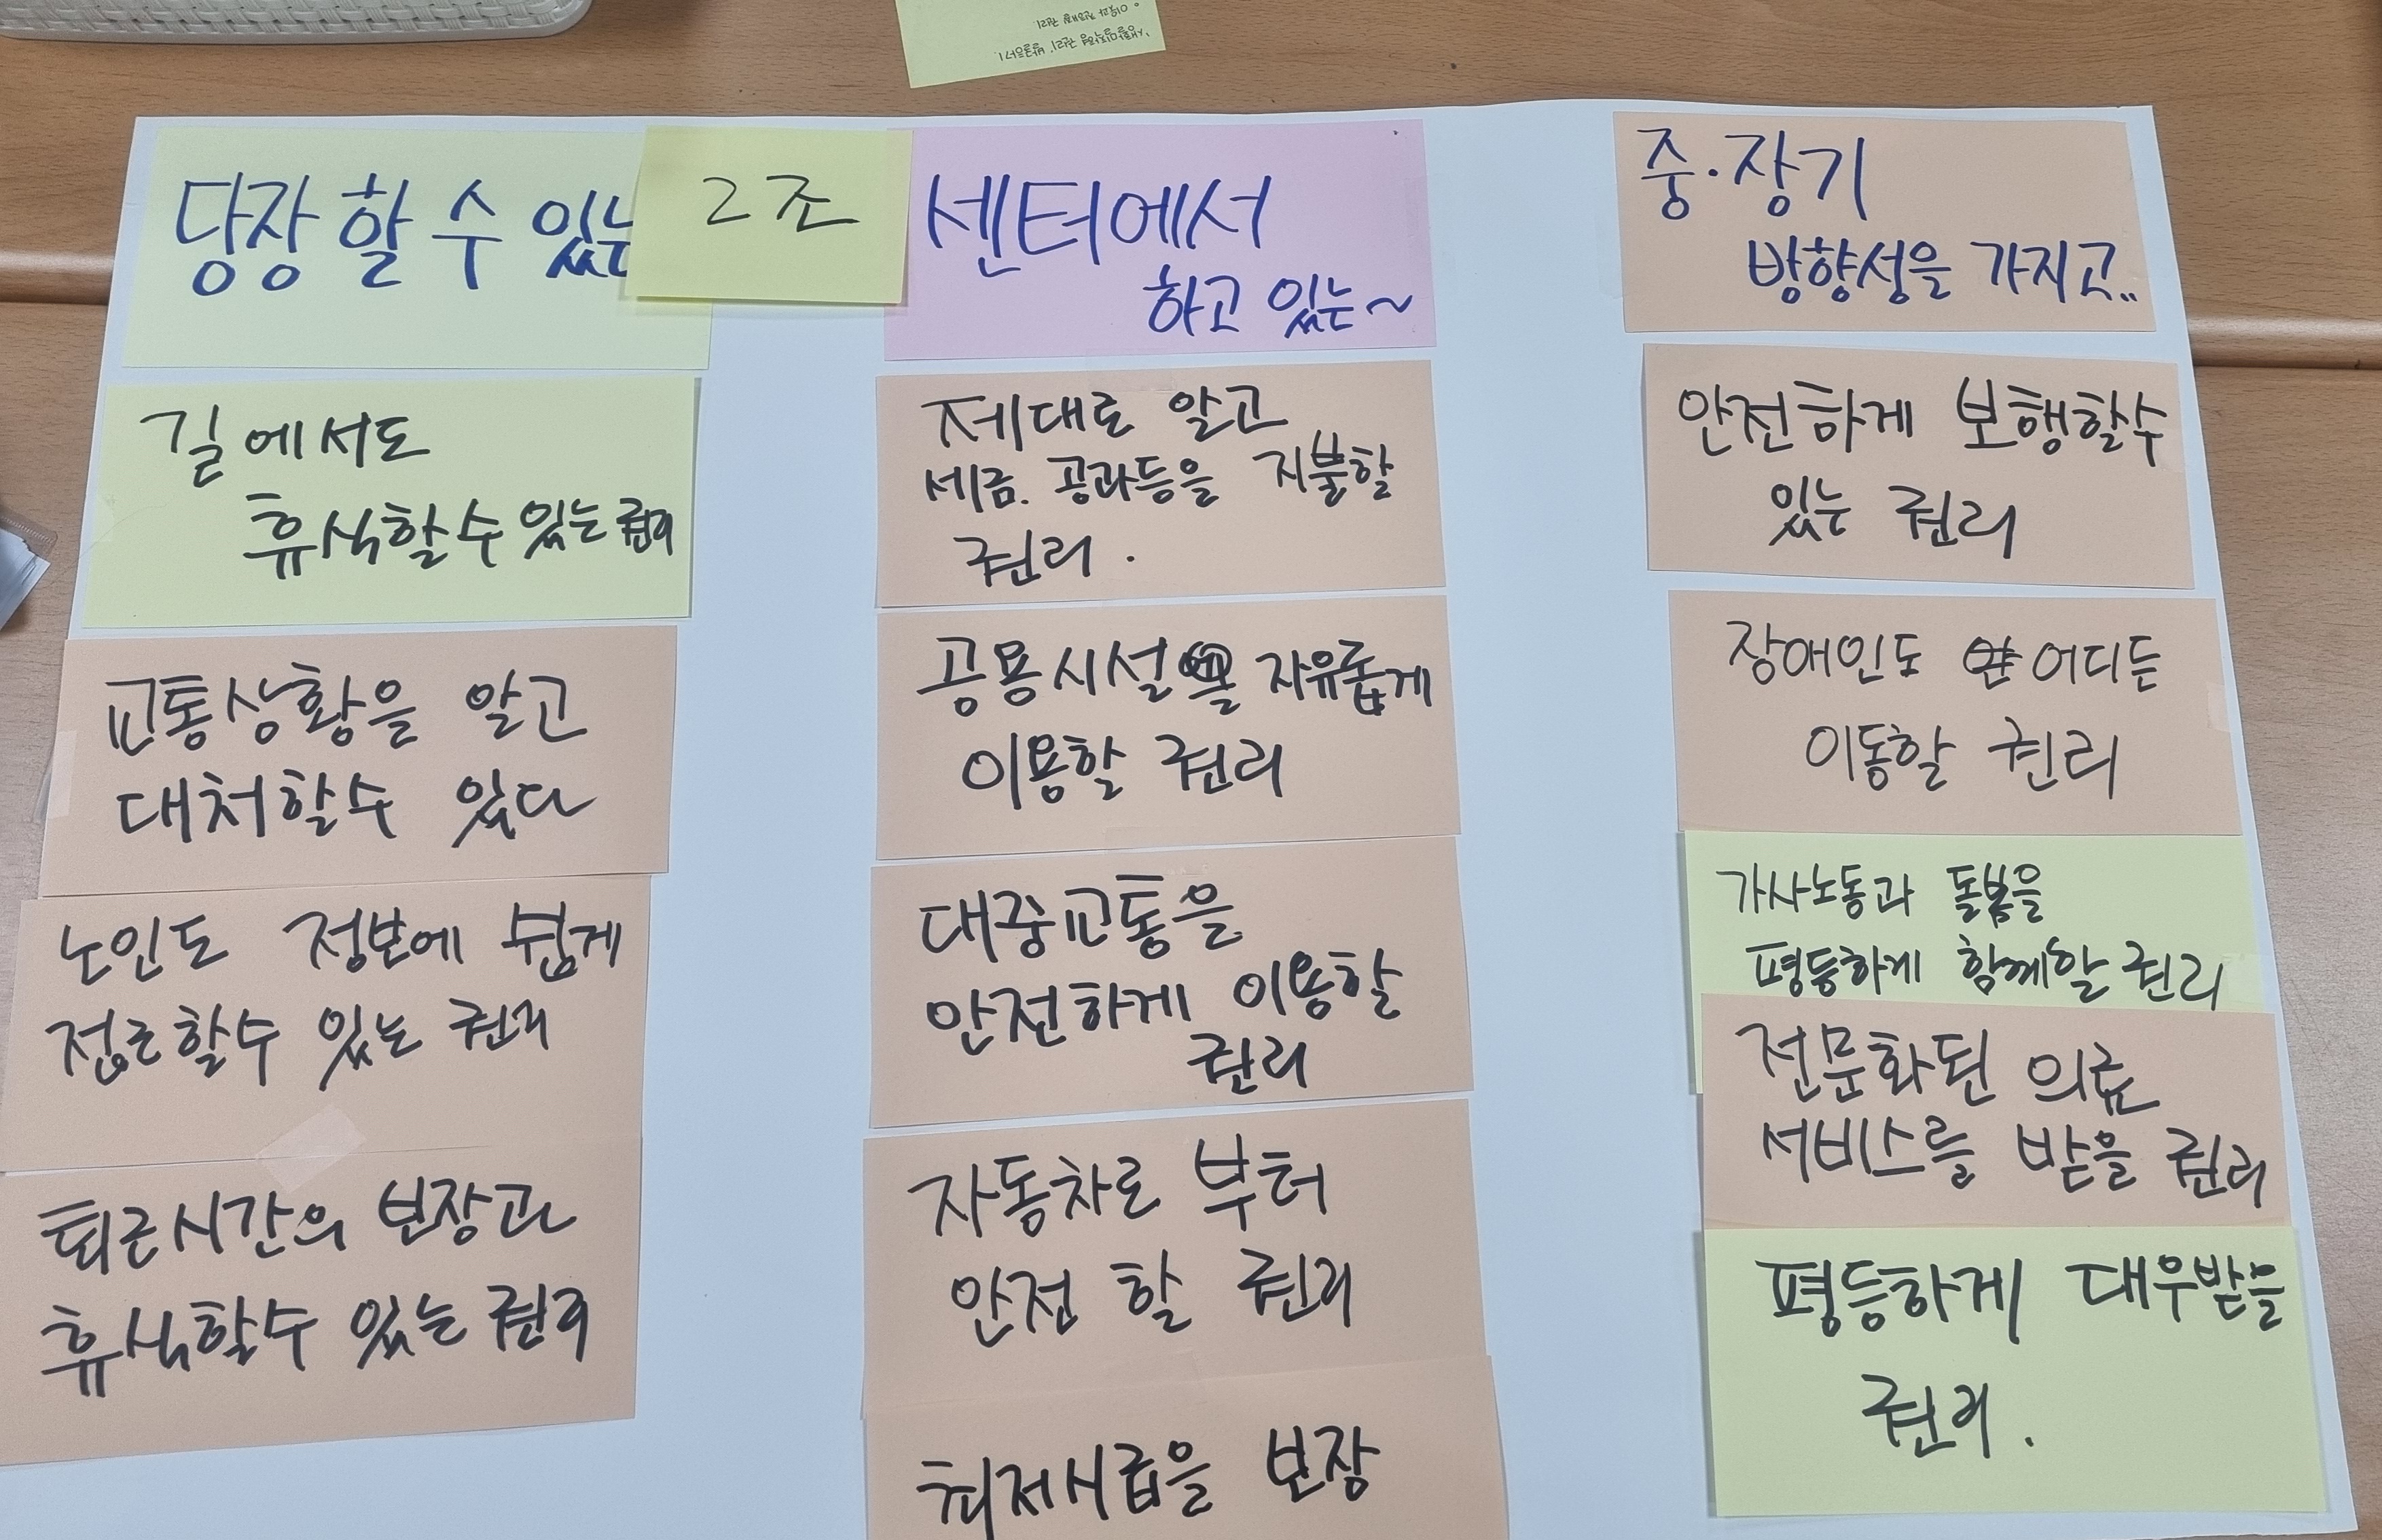 당장 할 수 있는
2조
길에서도
휴식할수 있는 권리
교통상황을 알고
대처할수 있다
노인도 정보에 쉽게
접근할수 있는 권리
퇴근시간의 보장과
휴식할수 있는 권리
센터에서
하고 있는~
제대로 알고
세금. 공과등을 지불할
권리.
공용시설을 자유롭게
이용할 권리
대중교통을
안전하게 이용할
권리
자동차로 부터
안전 할 권리
최저시급을 보장
중·장기
방향성을 가지고..
안전하게 보행할수
있는 권리
장애인도 어디든
이동할 권리
가사노동과 돌봄을
평등하게 함께할 권리
전문화된 의료
서비스를 받을 권리
평등하게 대우받을
권리.